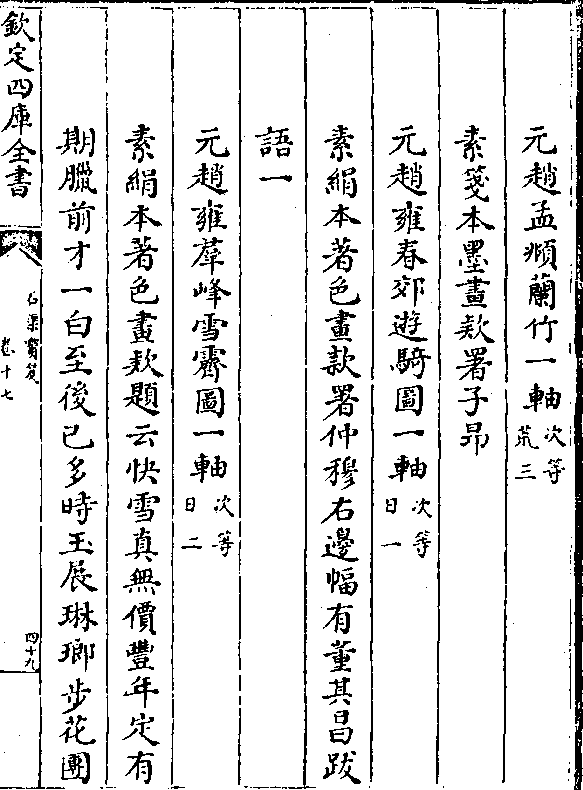 元趙孟頫蘭竹一軸次等荒三
素箋本墨畫款署子昂
元趙雍春郊遊騎圖一軸次等日一
素絹本著色畫款署仲穆右邊幅有董其昌跋
語一
元趙雍羣峰雪霽圖一軸次等日二
素絹本著色畫款題云快雪真無價豐年定有
期臘前才一白至後已多時玉展琳瑯步花團
欽定四庫全書
石渠寳笈
卷十七
四十九